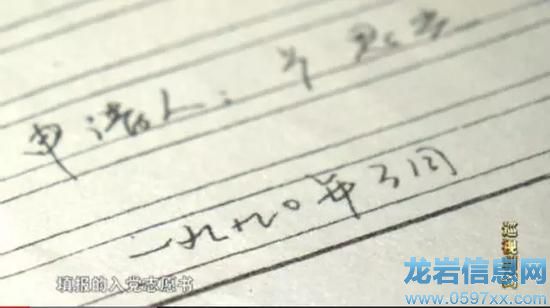 申请人：
一九九〇年3月
填报的入党志愿书
龙岩信息网
www.0597xx.com